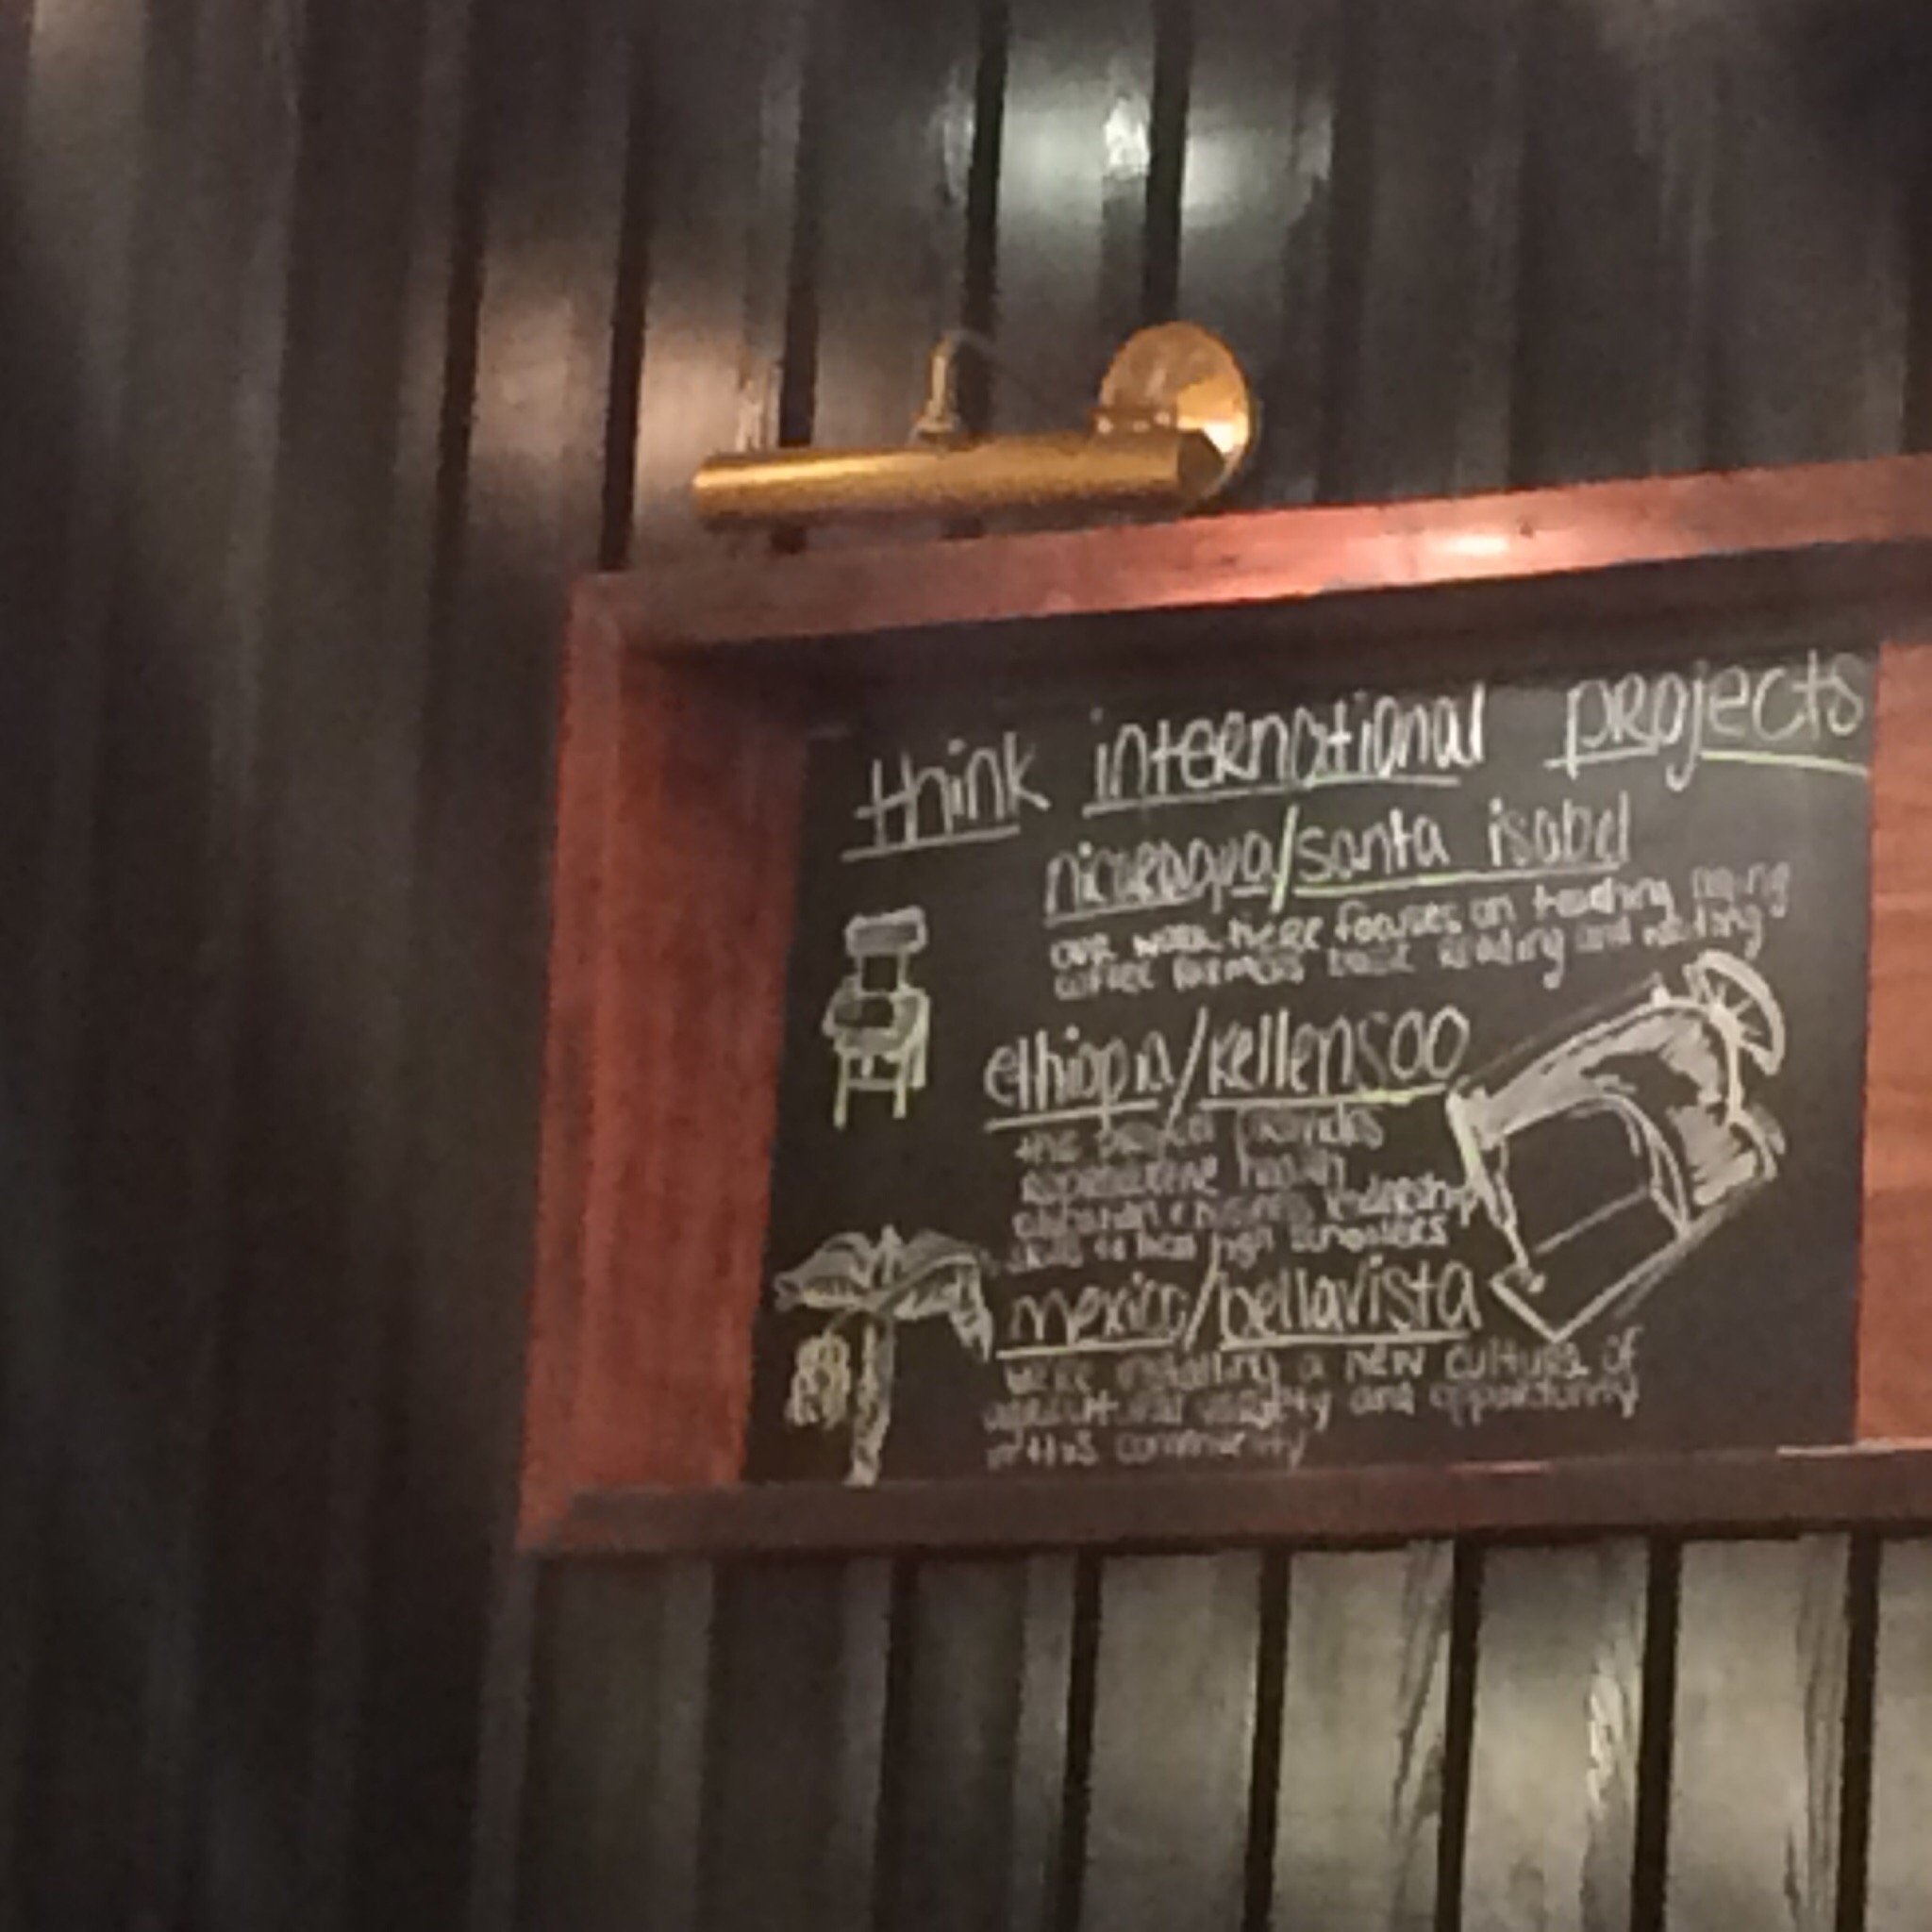 think international projects
nicaragua/santa isabel
our work here focuses on teaching
coffee farmers basic reading and writing
ethiopia/kellensoo
this project provides
reproductive health
education & leadership
skills to high schoolers
mexico/bellavista
we're installing a new culture of
agricultural and opportunity
in this community